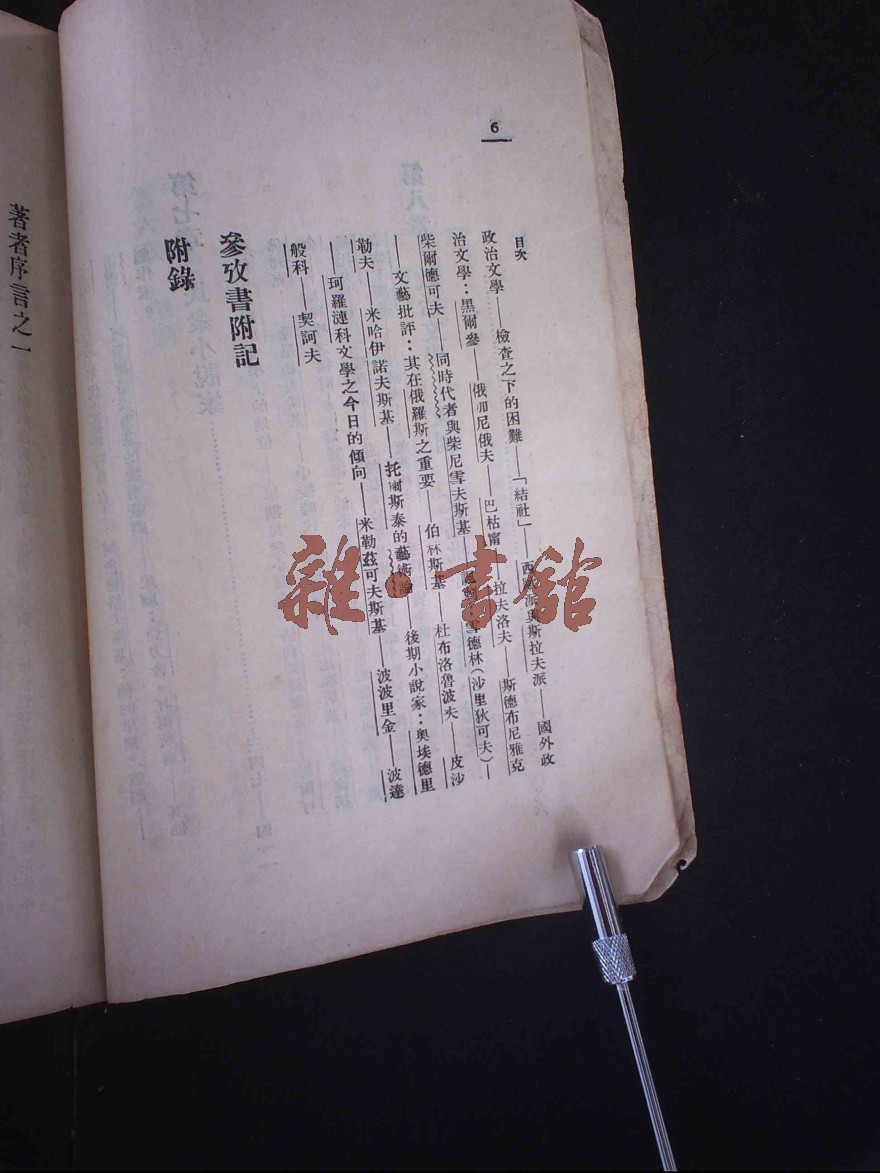 6
目次
政治文學——檢查之下的困難——「結社」——西派與斯拉夫派——國外政
治文學：黑爾參——俄加尼俄夫——巴枯甯——拉夫洛夫——斯德布尼雅克
柴爾德可夫——同時代者與柴尼雪夫斯基——雪德林（沙里狄可夫）——
文藝批評：其在俄羅斯之重要——伯林斯基——杜布洛魯波夫——皮沙
勒夫——米哈伊諾夫斯基——托爾斯泰的藝術論——後期小說家：奧埃德里
珂羅漣科文學之今日的傾向——米勒茲可夫斯基——波波里金——波達
般科——契訶夫
參攷書附記
附錄
著者序言之一
雜·書館